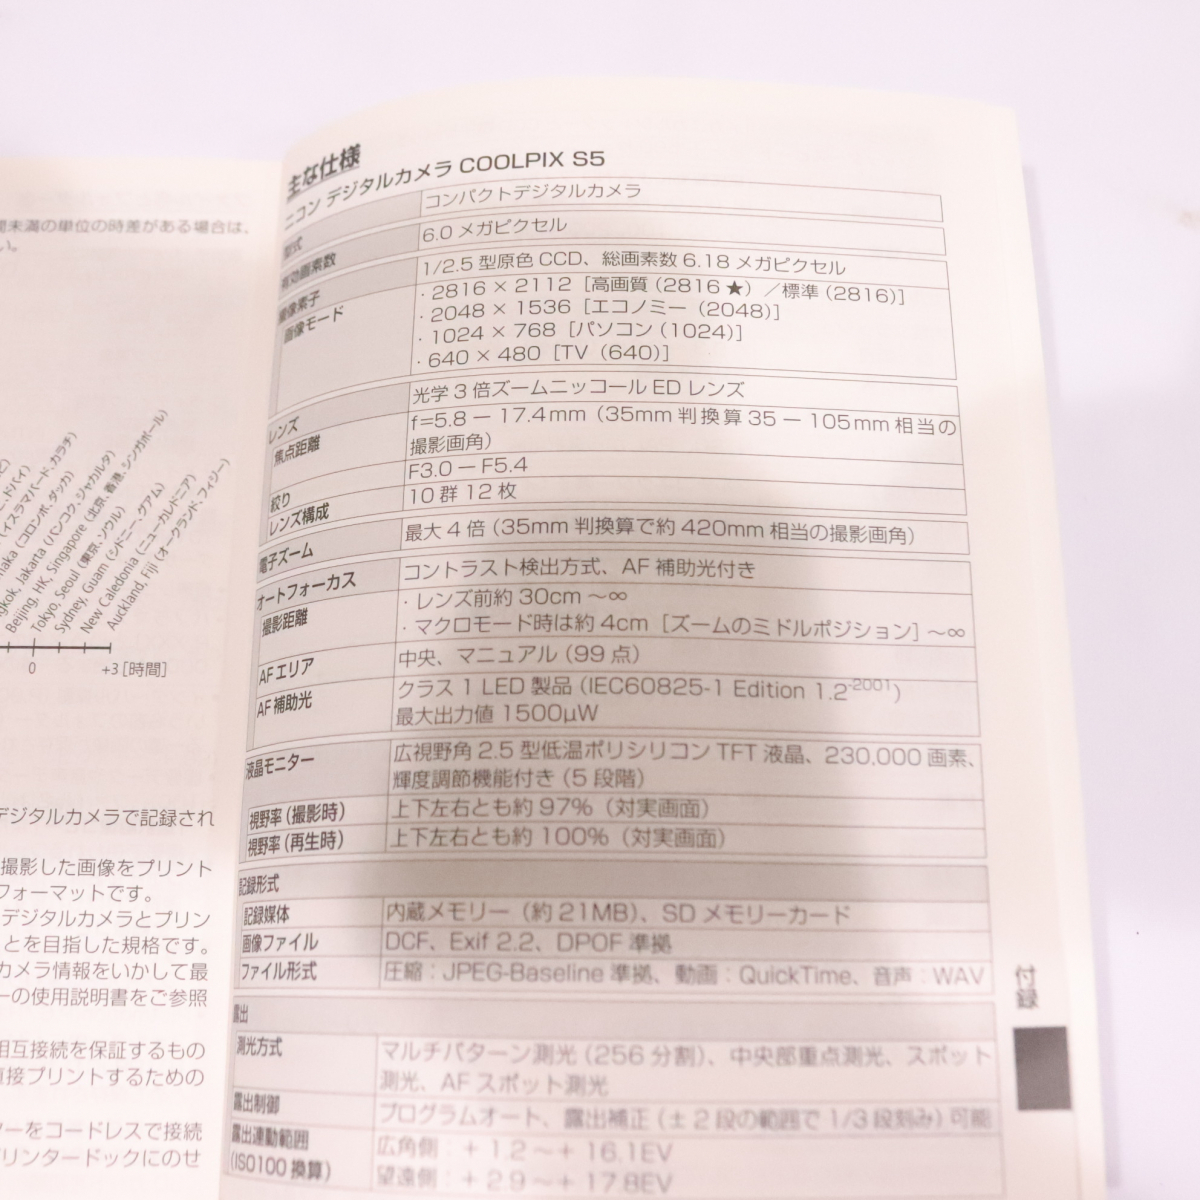 間未満の単位の時差がある場合は、
い。
(イスラマバード、カラチ)
(コロンボ、ダッカ)
Jakarta (バンコク、ジャカルタ)
Beijing, HK, Singapore (北京、香港、シンガポール)
Tokyo, Seoul (東京、ソウル)
Sydney, Guam (シドニー、グアム)
New Caledonia (ニューカルドニア)
Auckland, Fiji (オークランド、フィジー)
0 +3 [時間]
デジタルカメラで記録され
撮影した画像をプリント
フォーマットです。
デジタルカメラとプリン
ことを目指した規格です。
カメラ情報をいかして最
ーの使用説明書をご参照
相互接続を保証するもの
直接プリントするための
ーをコードレスで接続
プリンタードックにのせ
主な仕様
ニコン デジタルカメラ COOLPIX S5
型式 コンパクトデジタルカメラ
有効画素数 6.0 メガピクセル
撮像素子 1/2.5 型原色 CCD、総画素数 6.18 メガピクセル
画像モード ・2816 × 2112［高画質（2816 ★）／標準（2816）］
・2048 × 1536［エコノミー（2048）］
・1024 × 768［パソコン（1024）］
・640 × 480［TV（640）］
レンズ 光学 3 倍ズームニッコール ED レンズ
焦点距離 f=5.8 － 17.4mm（35mm 判換算 35 － 105mm 相当の
撮影画角）
絞り F3.0 － F5.4
レンズ構成 10 群 12 枚
電子ズーム 最大 4 倍（35mm 判換算で約 420mm 相当の撮影画角）
オートフォーカス コントラスト検出方式、AF 補助光付き
撮影距離 ・レンズ前約 30cm ～∞
・マクロモード時は約 4cm［ズームのミドルポジション］～∞
AF エリア 中央、マニュアル（99 点）
AF 補助光 クラス 1 LED 製品（IEC60825-1 Edition 1.2-2001）
最大出力値 1500μW
液晶モニター 広視野角 2.5 型低温ポリシリコン TFT 液晶、230,000 画素、
輝度調節機能付き（5 段階）
視野率（撮影時） 上下左右とも約 97%（対実画面）
視野率（再生時） 上下左右とも約 100%（対実画面）
記録形式
記録媒体 内蔵メモリー（約 21MB）、SD メモリーカード
画像ファイル DCF、Exif 2.2、DPOF 準拠
ファイル形式 圧縮：JPEG-Baseline 準拠、動画：QuickTime、音声：WAV
露出
測光方式 マルチパターン測光（256 分割）、中央部重点測光、スポット
測光、AF スポット測光
露出制御 プログラムオート、露出補正（± 2 段の範囲で 1/3 段刻み）可能
露出連動範囲 広角側：＋ 1.2 ～＋ 16.1EV
（ISO100 換算） 望遠側：＋ 2.9 ～＋ 17.8EV
付録